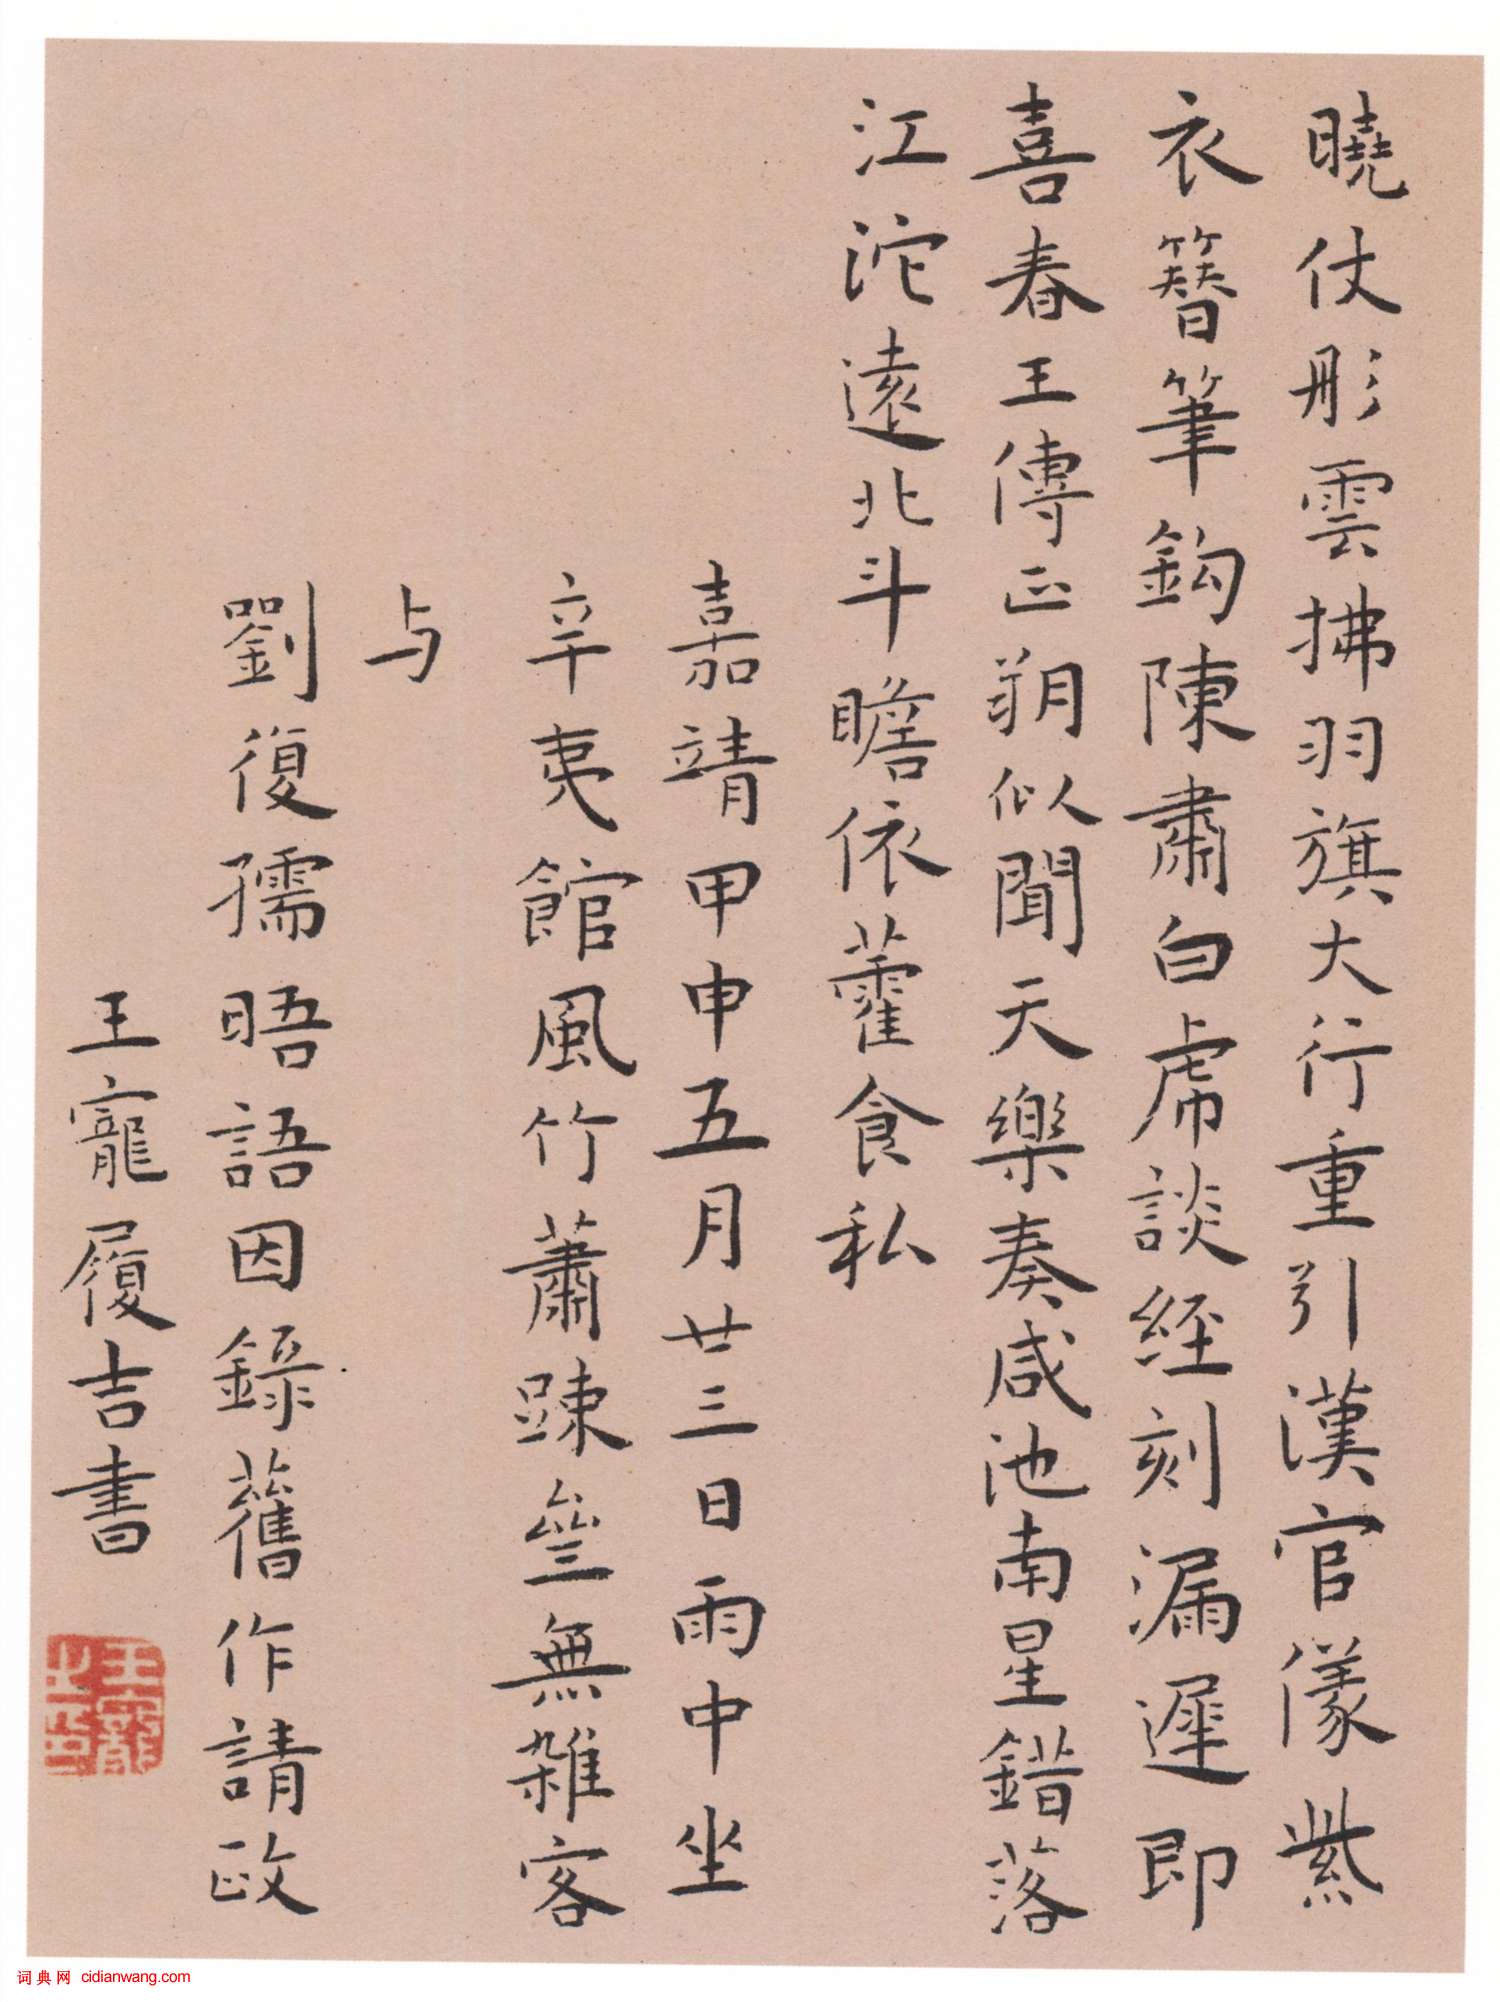 曉仗彤雲拂羽旗大行重引漢官儀紫
衣簪筆鈎陳肅白虎談経刻漏遲即
喜春王傳正朔似聞天樂奏咸池南星錯落
江沱遠北斗瞻依藿食私
嘉靖甲申五月廿三日雨中坐
辛夷館風竹蕭踈無雜客
与
劉復孺晤語因錄舊作請政
王寵履吉書
王寵
詞典网 cidianwang.com